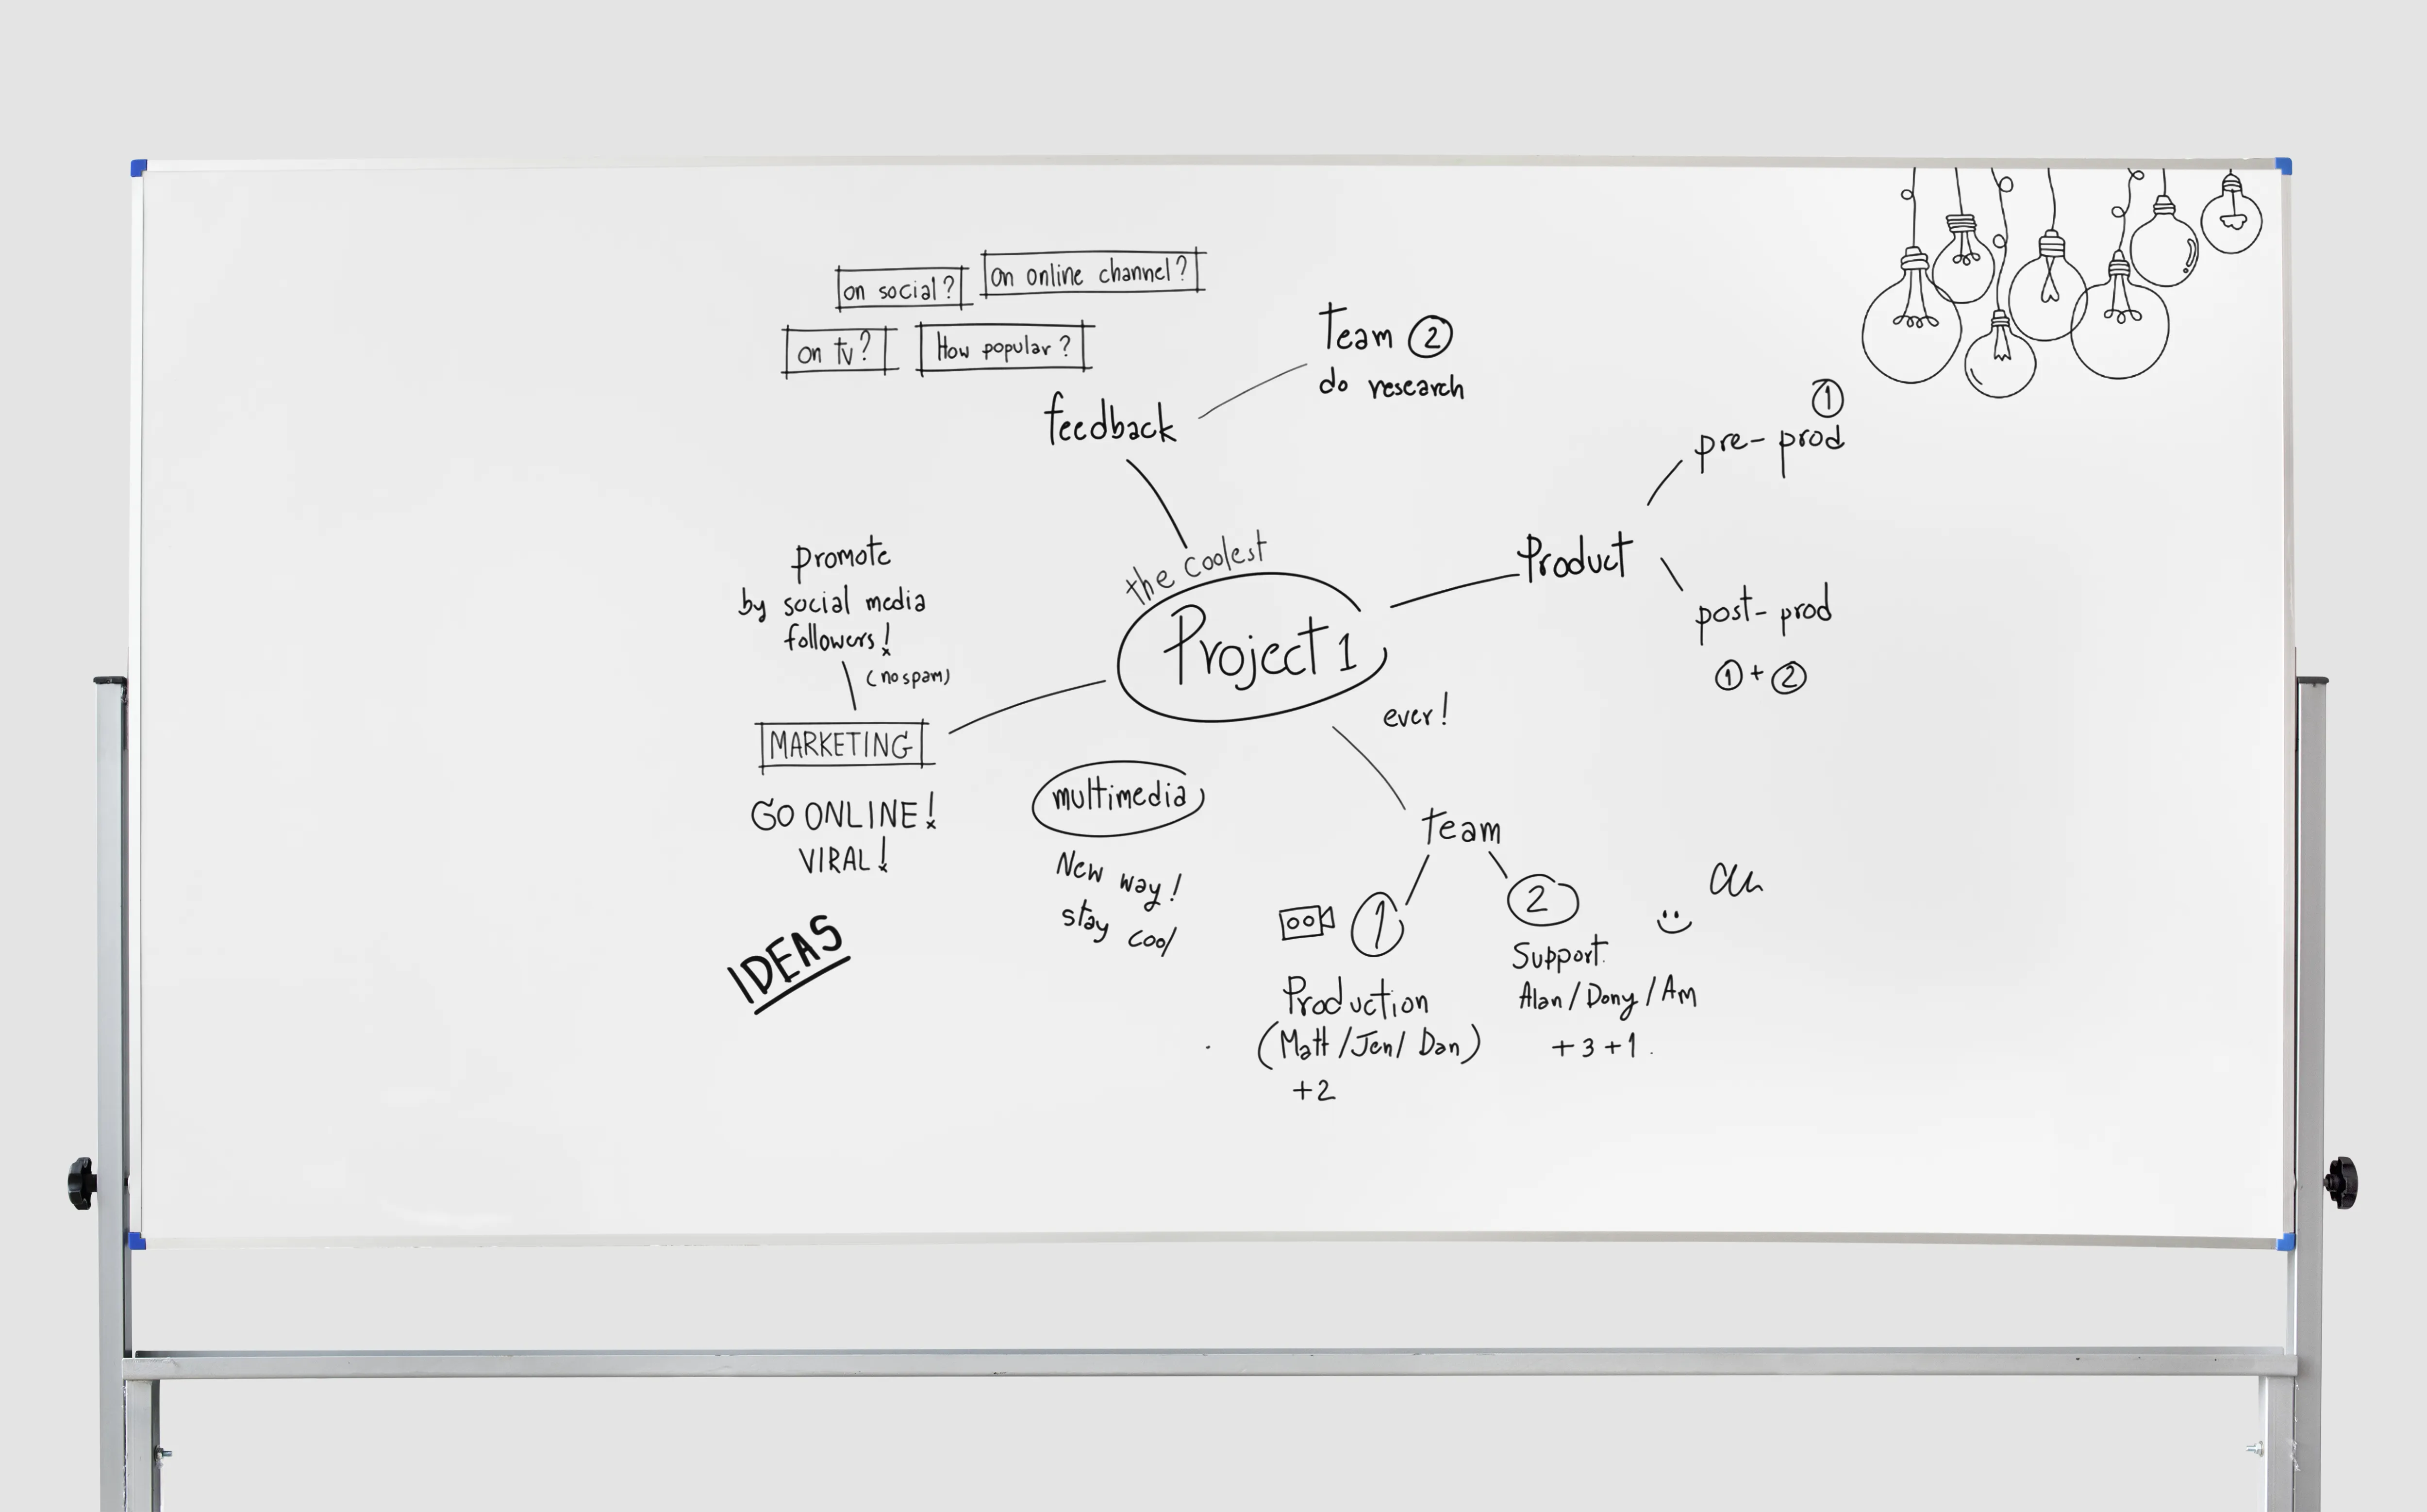 on social?
On online channel?
on tv?
How popular?
feedback
Team ②
do research
①
pre-prod
Product
post-prod
① + ②
the coolest
Project 1
ever!
promote
by social media
followers!
(no spam)
MARKETING
GO ONLINE!
VIRAL!
IDEAS
multimedia
New way!
stay cool
Team
1
Production
(Matt/Jen/Dan)
+2
2
Support
Alan/Dony/Am
+3 +1